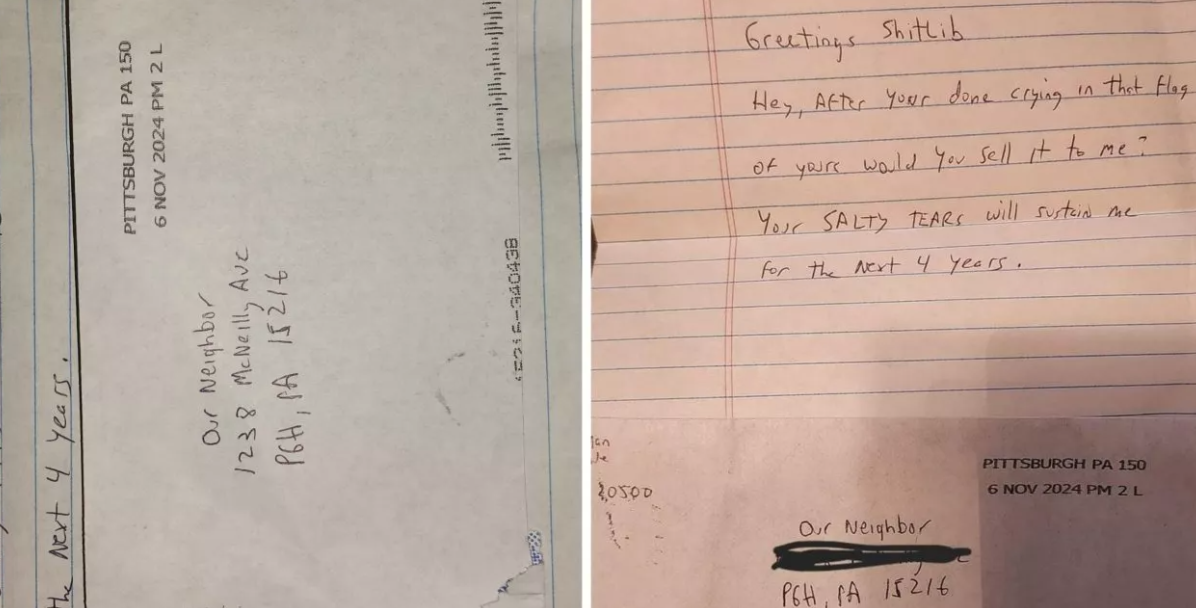 the Next 4 years.
PITTSBURGH PA 150
6 NOV 2024 PM 2 L
Our Neighbor
1238 McNeilly Ave
PGH, PA 15216
Greetings Shitlib
Hey, After your done crying in that flag
of yours would you sell it to me?
Your SALTY TEARS will sustain me
for the Next 4 years.
20500
PITTSBURGH PA 150
6 NOV 2024 PM 2 L
Our Neighbor
PGH, PA 15216